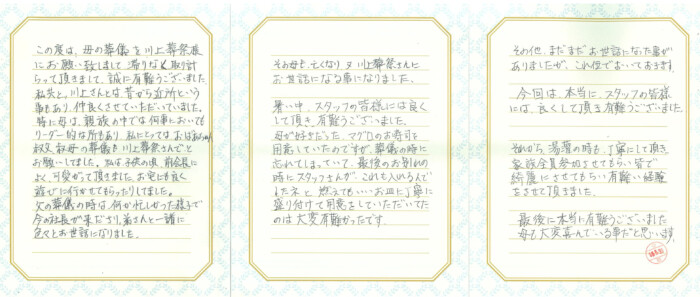 この度は、母の葬儀を川上葬祭様
にお願い致しまして滞りなく取計
らって頂きまして、誠に有難うございました。
私共と、川上さんとは、昔から近所という
事もあり、仲良くさせていただいていました。
特に母は、親族の中では何事においても
リーダー的な所もあり、私にとっては、おば
叔父、叔母の葬儀も川上葬祭さんでと
お願いしました。私は子供の頃、前会長に
よく、可愛がって頂きました。お宅にも良く
遊びに行かせてもらったりしました。
父の葬儀の時は、何か忙しかった様子で
今の社長が来ださり、弟さんと一緒に
色々とお世話になりました。
その母も、亡くなり又川上葬祭さんに
お世話になる事になりました。
暑い中、スタッフの皆様には良く
して頂き、有難うございました。
母が好きだった、マグロのお寿司を
用意していたのですが、葬儀の時に
忘れてしまっていて、最後のお別れの
時にスタッフさんが、これも入れるんで
したネと燃えてもいいお皿に丁寧に
盛り付けて用意をしていただいてた
のは大変有難かったです。
その他、まだまだお世話になった事が
ありましたが、これ位でおいておきます。
今回は、本当に、スタッフの皆様
には、良くして頂き有難うございました。
それから、湯灌の時も、丁寧にして頂き
家族全員参加させてもらい皆で
綺麗にさせてもらい有難い経験
をさせて頂きました。
最後に本当に有難うございました
母も大変喜んでいる事だと思います。